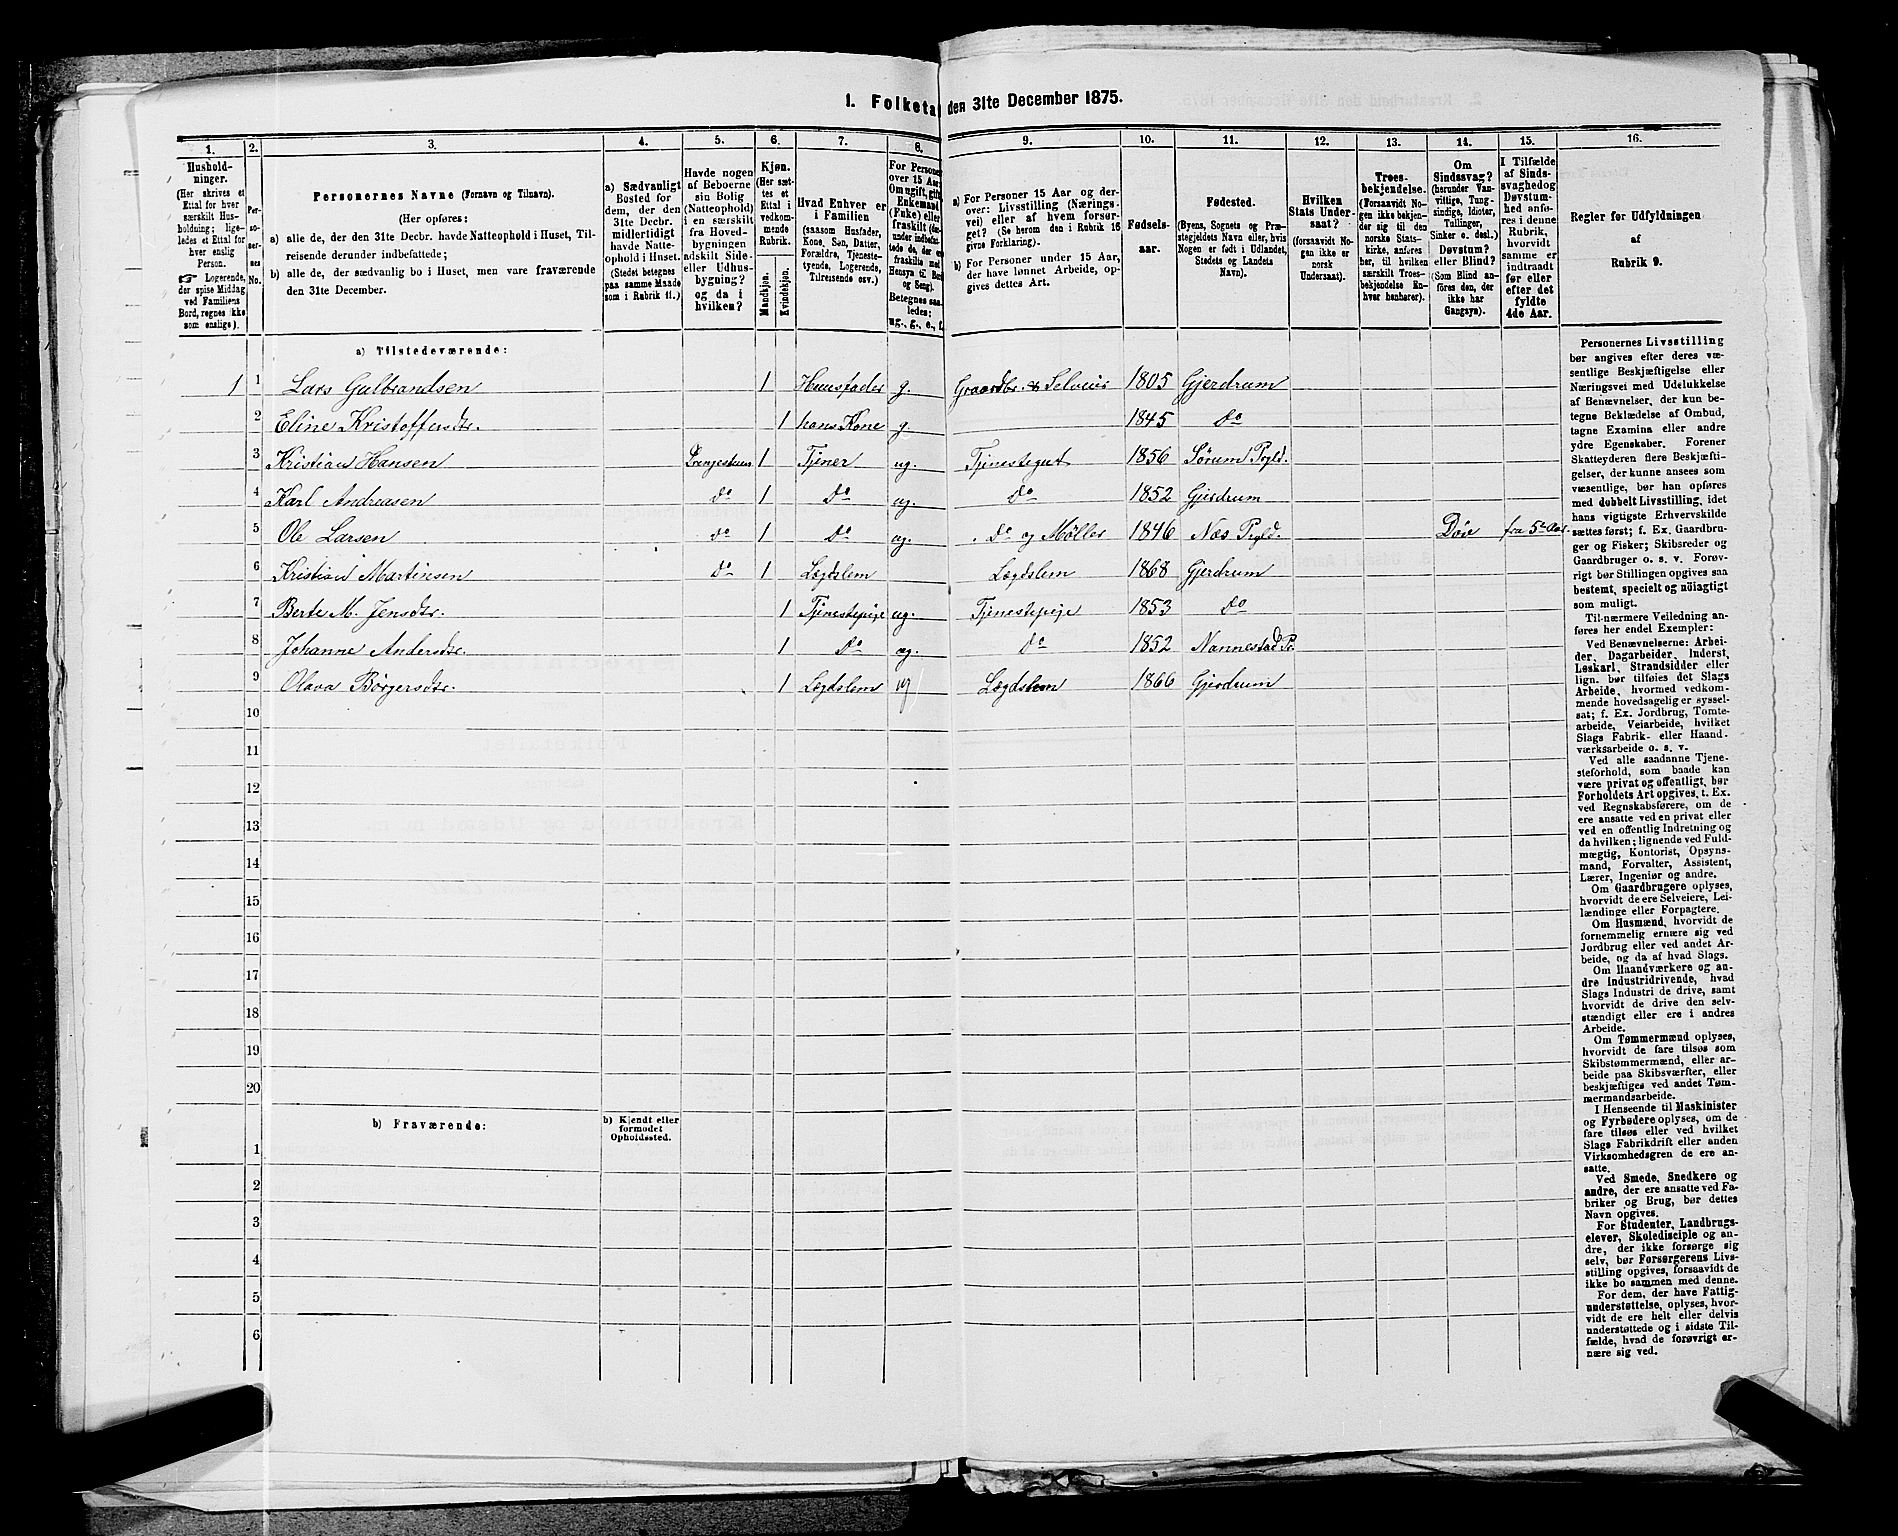 1. Folketal den 31te December 1875.
1. 2. 3. 4. 5. 6. 7. 8. 9. 10. 11. 12. 13. 14. 15. 16.
Husholdninger.
(Her skrives et
Ettal for hver
særskilt Husholdning;
ligeledes et Ettal for
hver enslig
Person.
☞ Logerende,
der spise Middag
ved Familiens
Bord, regnes ikke
som enslige).
Personernes No.
Personernes Navne (Fornavn og Tilnavn).
(Her opføres:
a) alle de, der den 31te Decbr. havde Natteophold i Huset, Tilreisende derunder indbefattede;
b) alle de, der sædvanlig bo i Huset, men vare fraværende
den 31te December.
a) Sædvanligt
Bosted for
dem, der den
31te Decbr.
midlertidigt
havde Natteophold
i Huset.
(Stedet betegnes
paa samme Maade
som i Rubrik 11.)
Havde nogen
af Beboerne
sin Bolig
(Natteophold)
i en særskilt
fra Hovedbygningen
adskilt Side-
eller Udhusbygning?
og da i
hvilken?
Kjøn.
(Her sættes et
Ettal i
vedkommende
Rubrik.
Mandkjøn.
Kvindekjøn.
Hvad Enhver er
i Familien
(saasom Husfader,
Kone, Søn, Datter,
Forældre, Tjenestetyende,
Logerende,
Tilreisende osv.)
For Personer
over 15 Aar:
Om ugift, gift,
Enkemand
(Fuke) eller
fraskilt
Betegnes saaledes:
ug., g., e., f.
a) For Personer 15 Aar og derover: Livsstilling (Næringsvei) eller af hvem forsørget? (Se herom den i Rubrik 16
givne Forklaring).
b) For Personer under 15 Aar,
der have lønnet Arbeide, opgives dettes Art.
Fødselsaar.
Fødested.
(Byens, Sognets og Præstegjeldets Navn eller, hvis
Nogen er født i Udlandet,
Stedets og Landets
Navn).
Hvilken
Stats Undersaat?
(forsaavidt Nogen ikke er
norsk
Undersaat).
Troesbekjendelse.
(Forsaavidt Nogen ikke bekjender sig til den
norske Statskirke, anføres
her, til hvilken
særskilt Troesbekjendelse Enhver henhører).
Om
Sindssvag?
(herunder Vanvittige, Tungsindige, Idioter,
Tullinger,
Sinker o. desl.)
Døvstum?
eller Blind?
(Som Blind anføres den, der
ikke har
Gangsyn).
I Tilfælde
af Sindssvaghed og
Døvstumhed anføres i denne
Rubrik,
hvorvidt
samme er
indtraadt
før eller
efter det
fyldte
4de Aar.
Regler for Udfyldningen
af
Rubrik 9.
a) Tilstedeværende:
1 1 Lars Gulbrandsen 1 Huusfader g. Graardbr. & Selveier 1805 Gjerdrum
2 Eline Kristoffersdtr. 1 hans Kone g. 1845 do
3 Kristian Hansen 1 Tjener ug. Tjenestegut 1856 Sørum Prgld.
4 Karl Andreasen do 1 do ug. do 1852 Gjerdrum
5 Ole Larsen do 1 do ug. do og Møller 1846 Næs Prgld. Døv fra 5te Aar.
6 Kristian Martinsen do 1 Lægdslem Lægdslem 1868 Gjerdrum
7 Berte M. Jensdtr. 1 Tjenestepige ug. Tjenestepige 1853 do
8 Johanne Andersdtr. 1 do ug. do 1852 Nannestad Pr.
9 Olava Børgersdtr. 1 Lægdslem ug Lægdslem 1866 Gjerdrum
10
11
12
13
14
15
16
17
18
19
20
b) Fraværende:
b) Kjendt eller
formodet
Opholdssted.
1
2
3
4
5
6
Personernes Livsstilling
bør angives efter deres væsentlige Beskjæftigelse eller
Næringsvei med Udelukkelse
af Benævnelser, der kun betegne Beklædelse af Ombud,
tagne Examina eller andre
ydre Egenskaber. Forener
Skatteyderen flere Beskjæftigelser, der kunne ansees som
væsentlige, bør han opføres
med dobbelt Livsstilling, idet
hans vigtigste Erhvervskilde
sættes først; f. Ex. Gaardbruger og Fisker; Skibsreder og
Gaardbruger o. s. v. Forøvrigt bør Stillingen opgives saa
bestemt, specielt og nøiagtigt
som muligt.
Til nærmere Veiledning anføres her endel Exempler:
Ved Benævnelserne: Arbeider, Dagarbeider, Inderst,
Løskarl, Strandsidder eller
lign. bør tilføies det Slags
Arbeide, hvormed vedkommende hovedsagelig er sysselsat; f. Ex. Jordbrug, Tomtearbeide, Veiarbeide, hvilket
Slags Fabrik- eller Haandværksarbeide o. s. v.
Ved alle saadanne Tjenesteforhold, som baade kan
være privat og offentligt, bør
Forholdets Art opgives, t. Ex.
ved Regnskabsførere, om de
ere ansatte ved en privat eller
ved en offentlig Indretning og
da hvilken; lignende ved Fuldmægtig, Kontorist, Opsynsmand, Forvalter, Assistent,
Lærer, Ingeniør og andre.
Om Gaardbrugere oplyses,
hvorvidt de ere Selveiere, Leilændinge eller Forpagtere.
Om Husmænd, hvorvidt de
fornemmelig ernære sig ved
Jordbrug eller ved andet Arbeide, og da af hvad Slags.
Om Haandværkere og andre Industridrivende, hvad
Slags Industri de drive, samt
hvorvidt de drive den selvstændigt eller ere i andres
Arbeide.
Om Tømmermænd oplyses,
hvorvidt de fare tilsøs som
Skibstømmermænd, eller arbeide paa Skibsværfter, eller
beskjæftiges ved andet Tømmermandsarbeide.
I Henseende til Maskinister
og Fyrbødere oplyses, om de
fare tilsøs eller ved hvilket
Slags Fabrikdrift eller anden
Virksomhedsgren de ere ansatte.
Ved Smede, Snedkere og
andre, der ere ansatte ved Fabriker og Brug, bør dettes
Navn opgives.
For Studenter, Landbrugselever, Skoledisciple og andre, der ikke forsørge sig
selv, bør Forsørgerens Livsstilling opgives, forsaavidt de
ikke bo sammen med denne.
For dem, der have Fattigunderstøttelse, oplyses, hvorvidt de ere helt eller delvis
understøttede og i sidste Tilfælde, hvad de forøvrigt ernære sig ved.